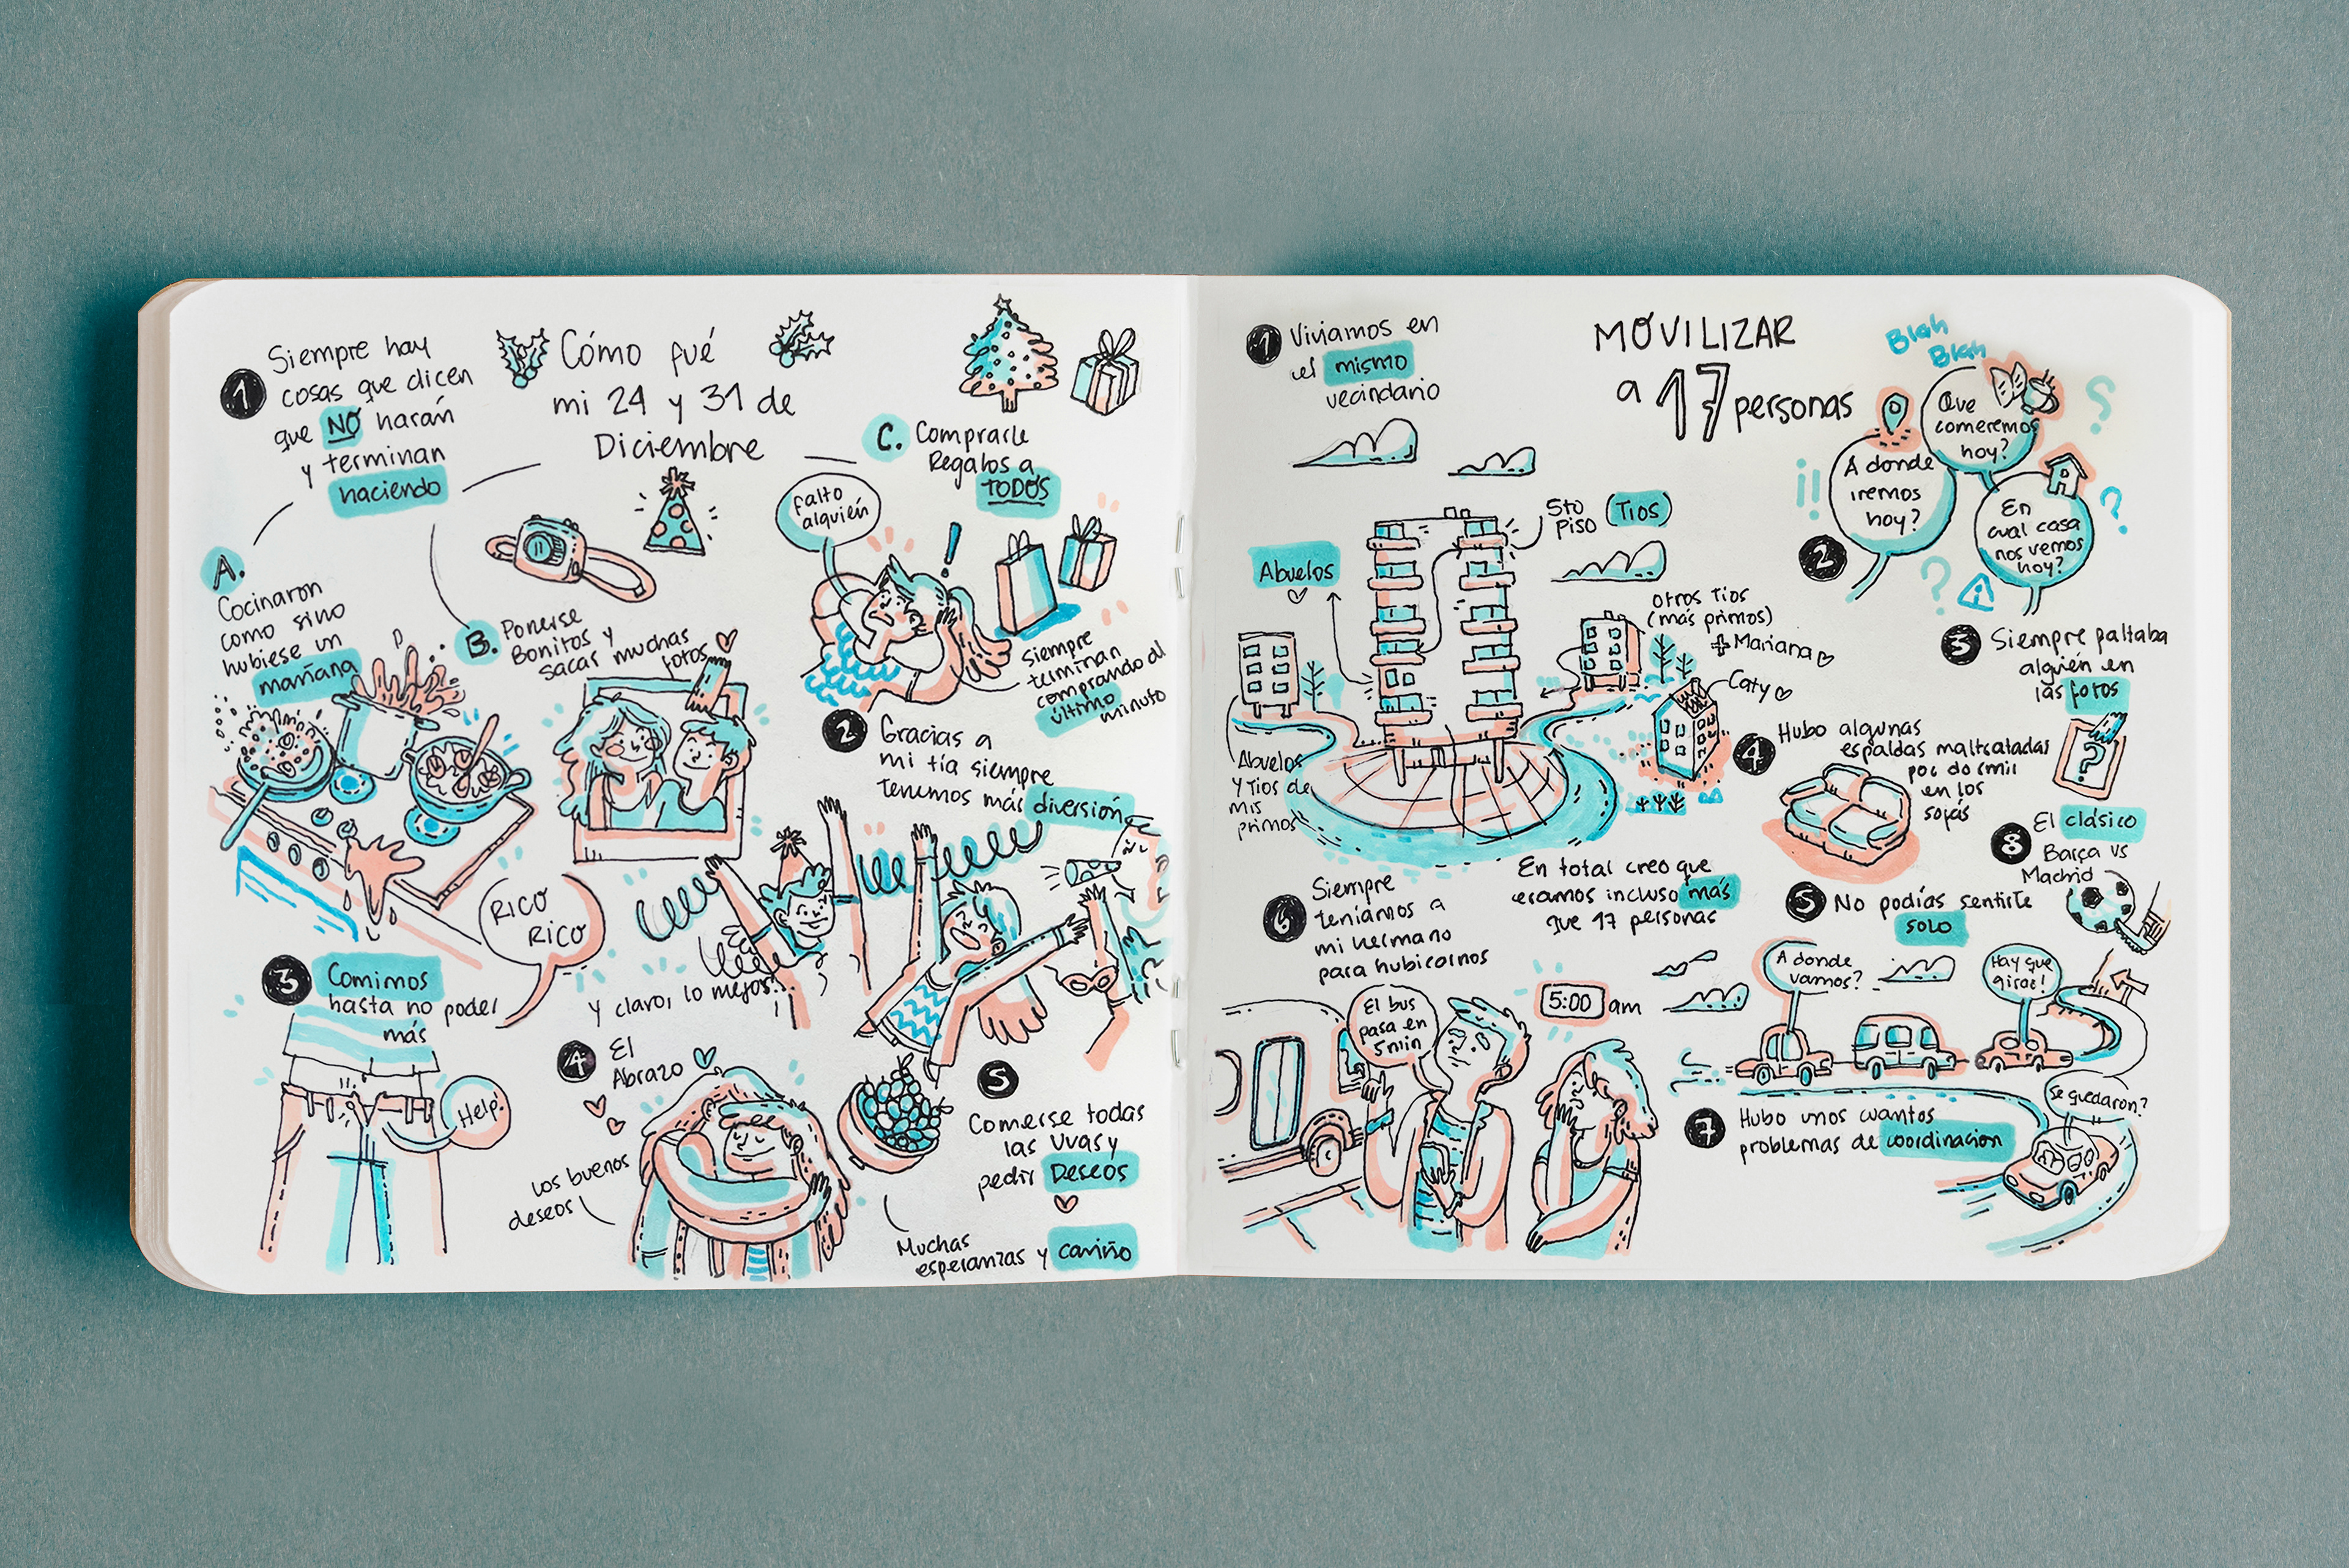 Cómo fué
mi 24 y 31 de
Diciembre
1
Siempre hay
cosas que dicen
que NO harán
y terminan
haciendo
A.
Cocinaron
como sino
hubiese un
mañana
B. Ponerse
Bonitos y
sacar muchas
fotos
C. Comprarle
Regalos a
TODOS
Falto
alguién
siempre
terminan
comprando al
último
minuto
2 Gracias a
mi tía siempre
tenemos más diversión
RICO
RICO
3 Comimos
hasta no poder
más
Help!
y claro, lo mejor:
4 El
Abrazo
los buenos
deseos
5
Comerse todas
las uvas y
pedir Deseos
Muchas
esperanzas y cariño
MOVILIZAR
a 17 personas
1 Viviamos en
el mismo
vecindario
5to
Piso (Tios)
Abuelos
otros Tios
(más primos)
+ Mariana
Caty
Abuelos
y Tios de
mis
primos
En total creo que
eramos incluso más
que 17 personas
Blah
Blah
Que
comeremos
hoy?
A donde
iremos
hoy?
En
cual casa
nos vemos
hoy?
2
3 Siempre faltaba
alguien en
las fotos
?
4 Hubo algunas
espaldas maltratadas
por dormir
en los
sofás
5 No podías sentirte
solo
8 El clásico
Barça vs
Madrid
6 Siempre
teníamos a
mi hermano
para hubicarnos
El bus
pasa en
5 min
5:00 am
A donde
vamos?
Hay que
girar!
se quedaron?
7 Hubo unos cuantos
problemas de coordinacion